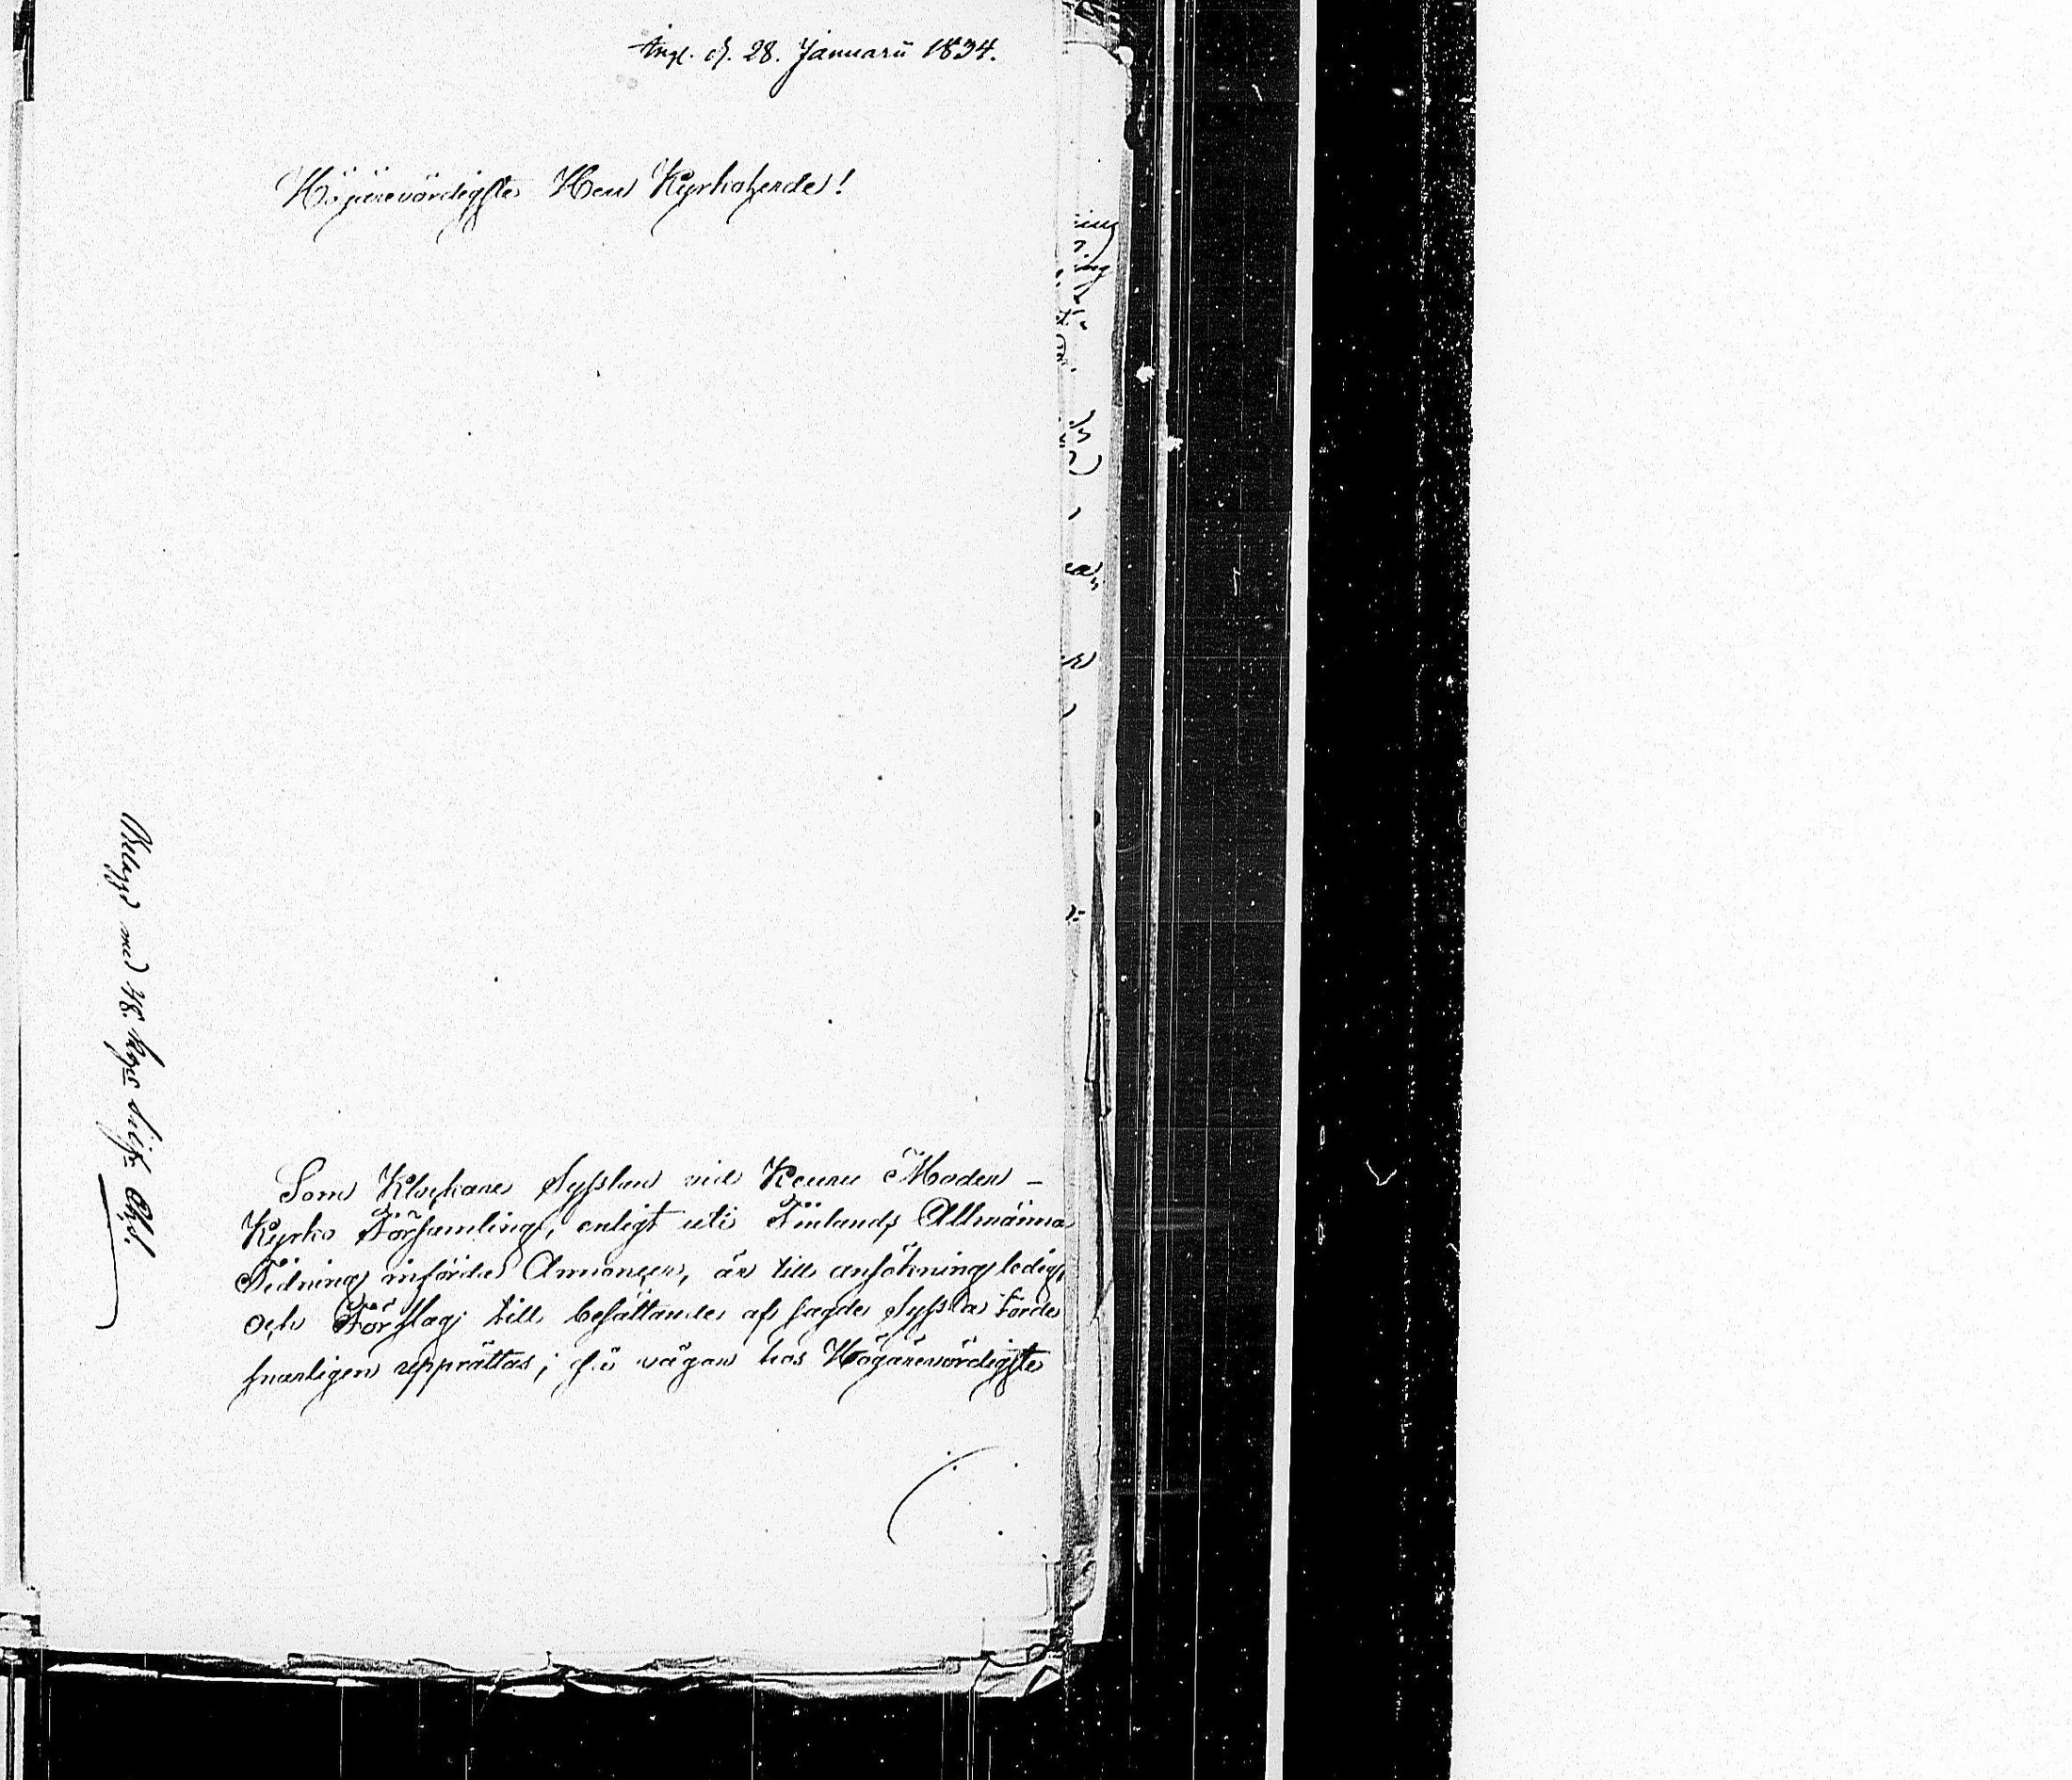 Ingl. d. 28. Januarii 1834.
Högärevördigste Herr Kyrkoherde!
Belagd med 48. Kop:s Sigill: Afg.
Som Klockare Sysslan vid Keuru Moder-
Kyrko Församling, enligt uti Finlands Allmänna
Tidning införde Annoncer, är till ansökning ledig,
och Förslag till besättande af sagde Syssla torde
snarligen upprättas; så vågar hos Högärevördigste